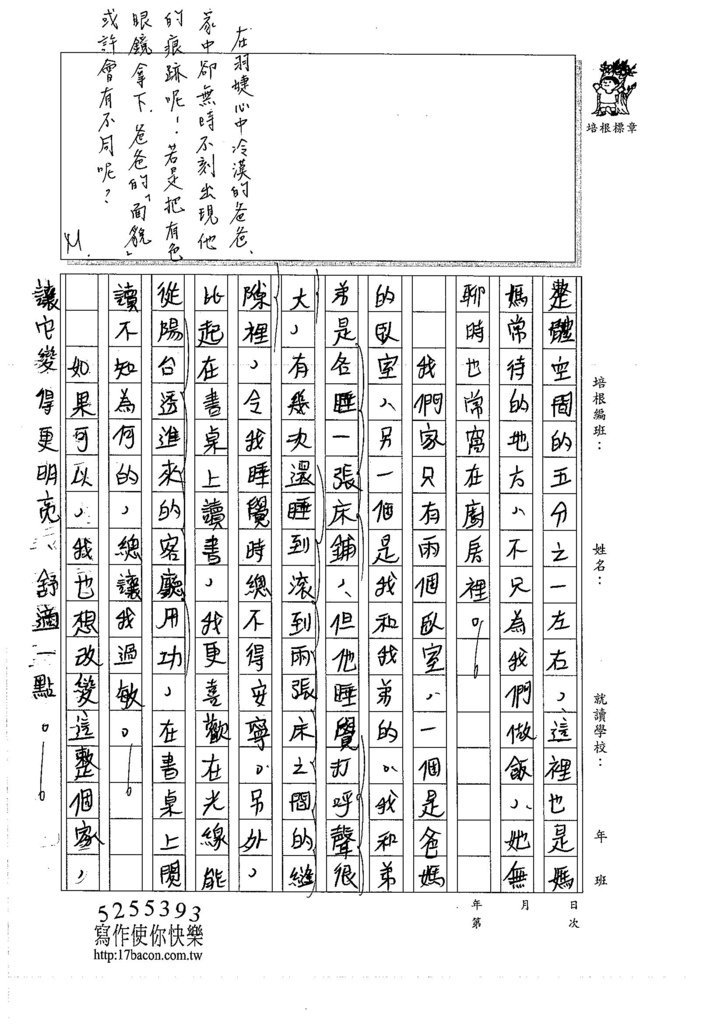 在羽婕心中冷漠的爸爸、
家中卻無時不刻出現他
的痕跡呢！若是把有色
眼鏡拿下，爸爸的「面貌」
或許會有不同呢？
M.
培根標章
培根編班：　姓名：　就讀學校：　年　班
整體空間的五分之一左右，這裡也是媽
媽常待的地方，不只為我們做飯，她無
聊時也常窩在廚房裡。
我們家只有兩個臥室，一個是爸媽
的臥室，另一個是我和我弟的。我和弟
弟是各睡一張床鋪，但他睡覺打呼聲很
大，有幾次還睡到滾到兩張床之間的縫
隙裡，令我睡覺時總不得安寧。另外，
比起在書桌上讀書，我更喜歡在光線能
從陽台透進來的客廳用功，在書桌上閱
讀不知為何的，總讓我過敏。
如果可以，我也想改變這整個家，
讓它變得更明亮、舒適一點。
年　月　日
第　次
5255393
寫作使你快樂
http:17bacon.com.tw